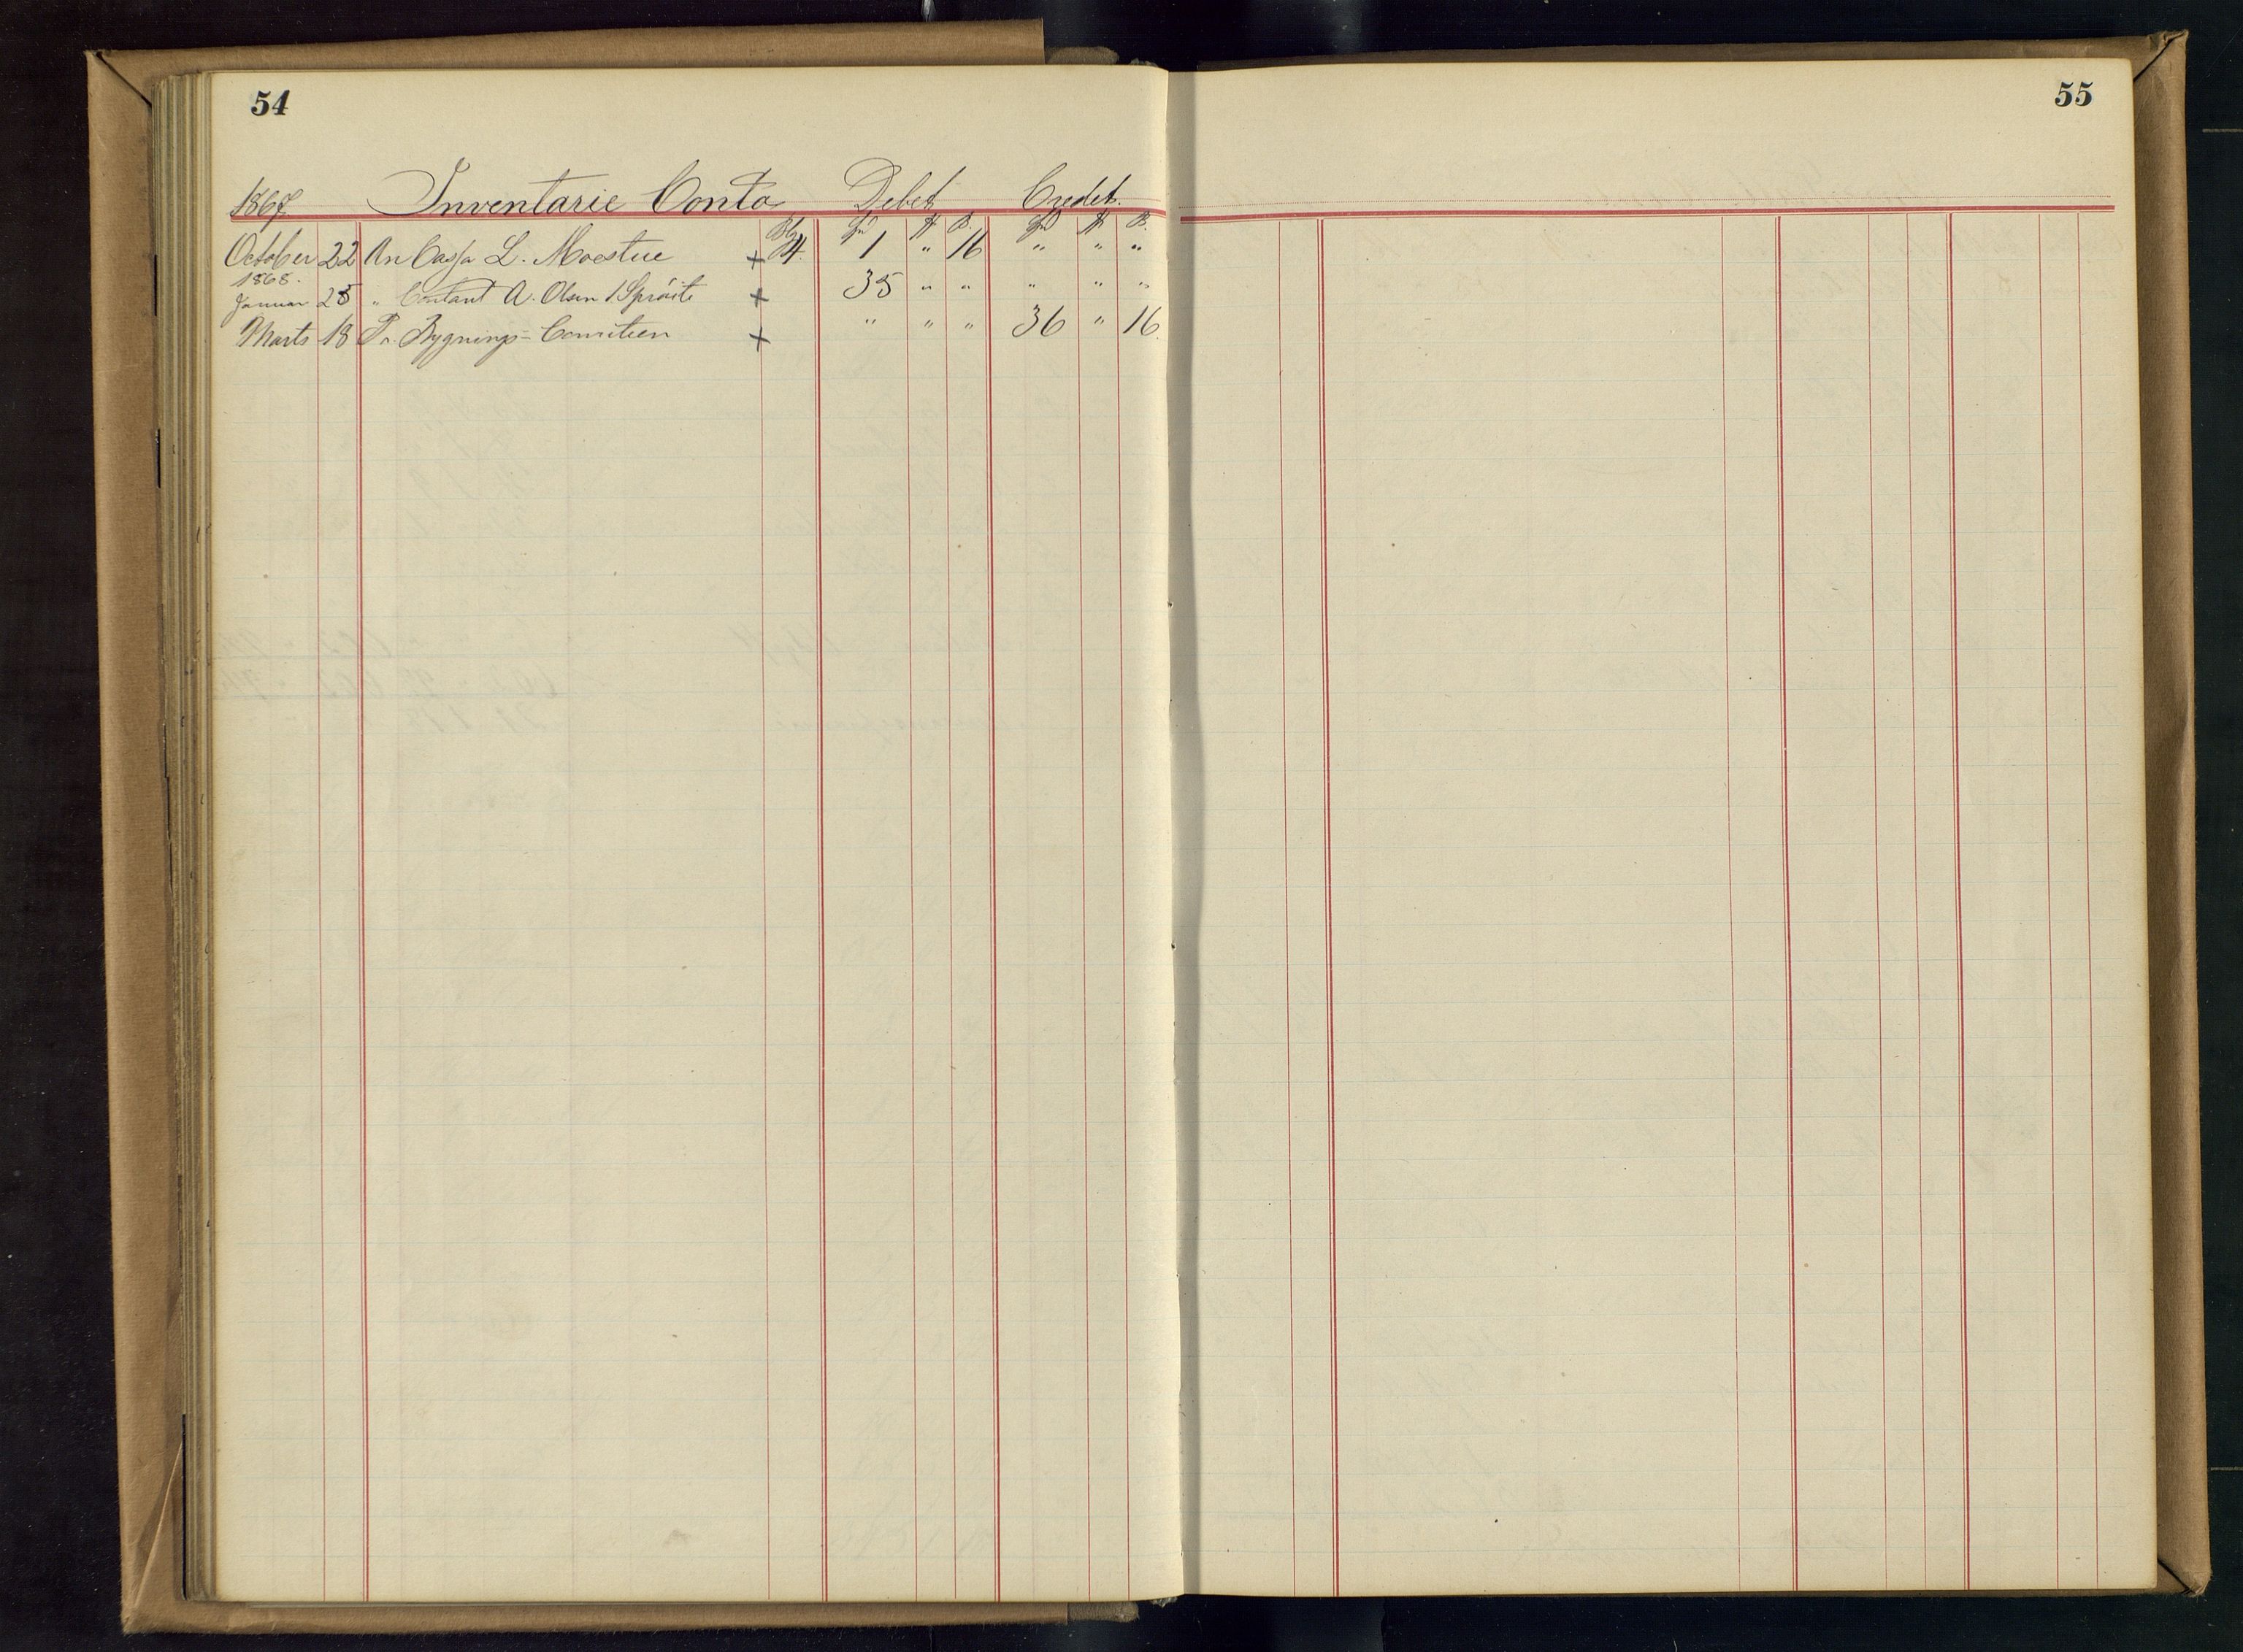 54
55
1867 Inventarie Conto Debet Credit.
Blg Spd ₰ β. Spd ₰ β.
October 22 An Cassa L. Moestue + 4. 1 " 16 " " "
1868.
Januar 25 " Contant A. Olsen 1 Spröite + 35 " " " " "
Marts 18 Pr. Bygnings= Comiteen + " " " 36 " 16